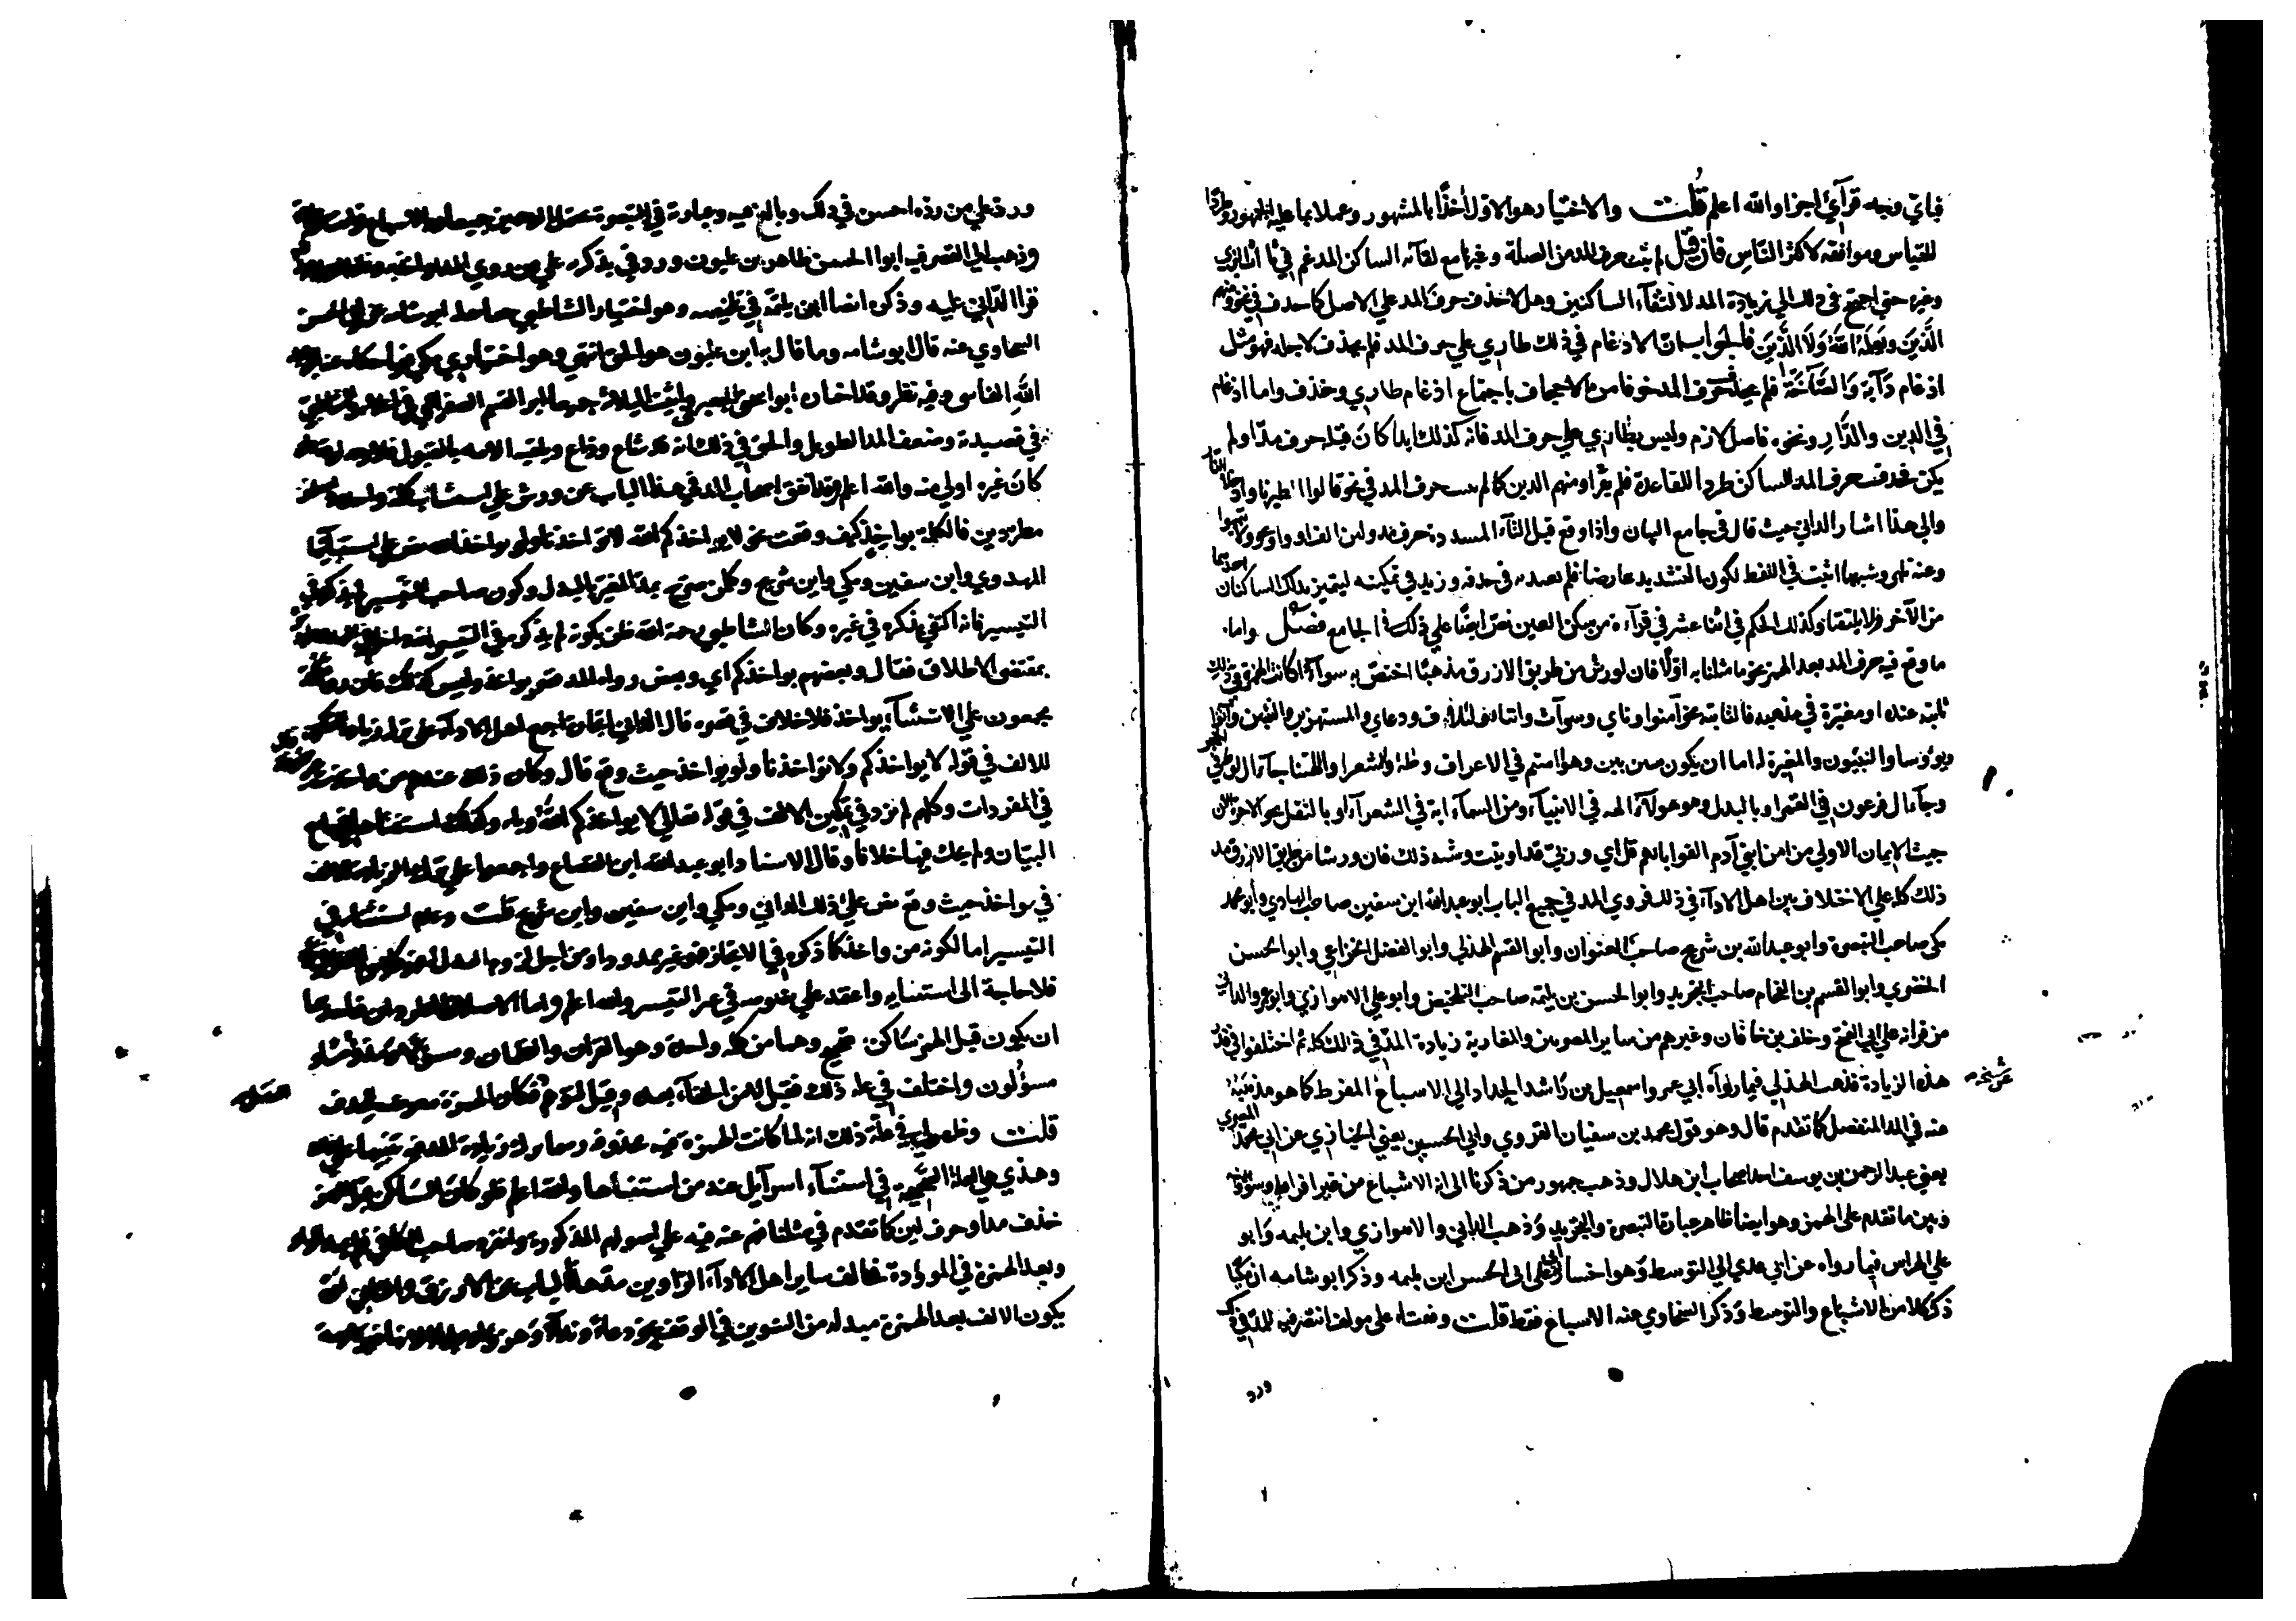 فباي وجه قرآئ اجزا والله اعلم قلت والاختيار هو الاول اخذا بالمشهور وعملا بما عليه الجمهور وطردا
للقياس وموافقه لاكثر الناس فان قيل لم ثبت حرف المد من الصلة وغيرها مع لقآئه الساكن المدغم في تا ات البزي
وغيره حتي احتج في ذلك الي زيادة المد لالتقآء الساكنين وهلا حذف حرف المد علي الاصل كما حذف في نحو ومنهم
الذين ويعلمه الله ولا الذين فالجواب ان الادغام في ذلك طاري علي حرف المد فلم يحذف لاجله فهو مثل
ادغام دآبة والصآخة فلم يحذف حرف المد خوفا من الاجحاف باجتماع ادغام طاري وحذف واما ادغام
في الدين والدار ونحوه فاصل لازم وليس بطاري علي حرف المد فانه كذلك ابدا كان قبله حرف مد او لم
يكن فحذف حرف المد للساكن طردا للقاعدة فلم يقرا ومنهم الذين كما لم حرف المد في نحو قالوا اطيرنا وادخلا النار
والي هذا اشار الداني حيث قال في جامع البيان واذا وقع قبل التآء المشددة حرف مد ولين الف او واو نحو ولا تيمموا
وعنه تلهي وشبهها اثبت في اللفظ لكون التشديد عارضا فلم يعتد به في حذفه وزيد في تمكينه ليتميز بذلك الساكنان احدهما
من الآخر فلا يلتقيا وكذلك الحكم في اثنا عشر في قرآءة من سكن العين نص ايضا علي ذلك في الجامع فصل واما
ما وقع فيه حرف المد بعد الهمز نحو ما مثلنا به اولا فان لورش من طريق الازرق مذهبا اختص به سوآء اكانت الهمزة في ذلك
ثابتة عنده او مغيرة في مذهبه فالثابتة نحو آمنوا وناي وسوآت واتنا ولايلاف ودعاي والمستهزين والنبين
ويؤوسا والنبيون والمغيرة له اما ان يكون بين بين وهو اامنتم في الاعراف وطه والشعرا واالهتنا جآء ال لوط في
وجآء ال فرعون في القمر او بالبدل وهو هولآء الهه في الانبيآء ومن السمآء اية في الشعرآء او بالنقل نحو الاخرة الان
جيت الايمان الاولي من امن ابني آدم الفوا اباهم قل اي وربي قد اوتيت وشبه ذلك فان ورشا من طريق الازرق مد
ذلك كله علي الاختلاف بين اهل الادآء في ذلك فروي المد في جميع الباب ابو عبد الله ابن سفين صاحب الهادي وابو محمد
مكي صاحب التبصرة وابو عبدالله بن شريح صاحب العنوان وابو القسم الهذلي وابو الفضل الخزاعي وابو الحسن
الحصري وابو القسم بن الفحام صاحب التجريد وابو الحسن بن بليمه صاحب التلخيص وابو علي الاهوازي وابو عمرو الداني
من قراته علي ابي الفتح وخلف بن خاقان وغيرهم من ساير المصريين والمغاربة زيادة المد في ذلك كله ثم اختلفوا في قدر
هذه الزيادة فذهب الهذلي فيما رواه عن شيخه ابي عمرو اسمعيل بن راشد الحداد الي الاسباع المفرط كما هو مذهبه
عنه في المد المنفصل كما تقدم قال وهو قول محمد بن سفيان القروي وابي الحسين يعني الخبازي عن ابي محمد المصري
يعني عبد الرحمن بن يوسف احد اصحاب ابن هلال وذهب جمهور من ذكرنا الي انه الاشباع من غير افراط وسووا بينه
وبين ما تقدم علي الهمز وهو ايضا ظاهر عبارة التبصرة والتجريد وذهب الداني والاهوازي وابن بليمه وابو
علي الهراس فيما رواه عن ابن عدي الي التوسط وهو اختيار ابي علي الحسن ابن بليمه وذكر ابو شامه ان مكيا
ذكر كلا من الاشباع والتوسط وذكر السخاوي عنه الاسباع فقط قلت وقفت له علي مولف انتصر فيه للمد في
ورد
ورد علي من رده احسن في ذلك وبالغ فيه وعبارته في التبصرة تحتمل الوجهين جميعا
وذهب الي القصر فيه ابوا الحسن طاهر بن غلبون ورد في تذكرته علي من روي المد
قرا الداني عليه وذكره ايضا ابن بليمة في تلخيصه وهو اختيار الشاطبي حسبما نقله ابو شامه عن ابي الحسن
السخاوي عنه قال ابو شامه وما قال به ابن غلبون هو الحق انتهي وهو اختيار مكي فيما حكاه عنه ابو عبد
الله الفاسي وفيه نظر وقد اختاره ابو اسحق الجعبري واثبت الثلاثة جميعا ابو القسم الصفراوي في اعلانه والشاطبي
في قصيدته وضعف المد الطويل والحق في ذلك انه قد شاع وذاع وتلقته الامه بالقبول فلا وجه لرده
كان غيره اولي منه والله اعلم وقد اتفق اصحاب المد في هذا الباب عن ورش علي استثناء كلمة واحدة
مطردين فالكلمة يواخذ كيف وقعت نحو لا يواخذكم الله لا تواخذنا ولو يواخذ الله نص علي استثنائها
المهدوي وابن سفين ومكي وابن شريح وكلهم صرح بمد المغير بالبدل وكون صاحب التيسير لم يذكره في
التيسير فانه اكتفي بذكره في غيره وكان الشاطبي رحمه الله ظن بكونه لم يذكره في التيسير انه داخل في
بمقتضي الاطلاق فقال وبعضهم يواخذكم اي وبعض رواه المد قصر يواخذ وليس كذلك فان رواة
مجمعون علي الاستثنآء يواخذ فلا خلاف في قصره قال الداني في ايجازه اجمع اهل الادآء علي ترك زيادة التمكين
للالف في قوله لا يواخذكم ولا تواخذنا ولو يواخذ حيث وقع قال وكان ذلك عندهم من واخذت
في المفردات وكلهم لم يزد في تمكين الالف في قوله تعالي لا يواخذكم الله وبابه وكذلك استثناها في جامع
البيان ولم يحك فيها خلافا وقال الاستاذ ابو عبد الله ابن القصاع واجمعوا علي ترك الزيادة للالف
في يواخذ حيث وقع نص علي ذلك الداني ومكي وابن سفين وابن شريح قلت وعدم استثنائه في
التيسير اما لكونه من واخذ كما ذكره في الايجاز فهو غير ممدود او من اجل لزوم البدل له
فلا حاجة الي استثنايه واعتمد علي نصوصه في غير التيسير والله اعلم واما الاصلان المطردان فاحدهما
ان يكون قبل الهمز ساكن صحيح وهما من كلمة واحدة وهو القرآن والظمآن ومسؤلا
مسؤلون واختلف في علة ذلك فقيل لامن اخفآء بعده وقيل لتوهم النقل فكان الهمزة معرضة للحذف
قلت وظهر لي في علة ذلك انه لما كانت الهمزة فيه محذوفة رسما ترك زيادة المد فيه تنبيها علي ذلك
وهذي هي العلة الصحيحة في استثنآء اسرآئيل عند من استثناها والله اعلم فلو كان الساكن قبل الهمز
حرف مد او حرف لين كما تقدم في مثلنا فهم عنه فيه علي اصولهم المذكورة وانفرد صاحب الكافي فلم يمد الواو
وبعد الهمزة في المؤودة فخالف ساير اهل الادآء الراوين مد هذا الباب عن الازرق والثاني ان
يكون الالف بعد الهمزة مبدلة من التنوين في الوقف نحو دعآء وندآء وهزوا وملجا